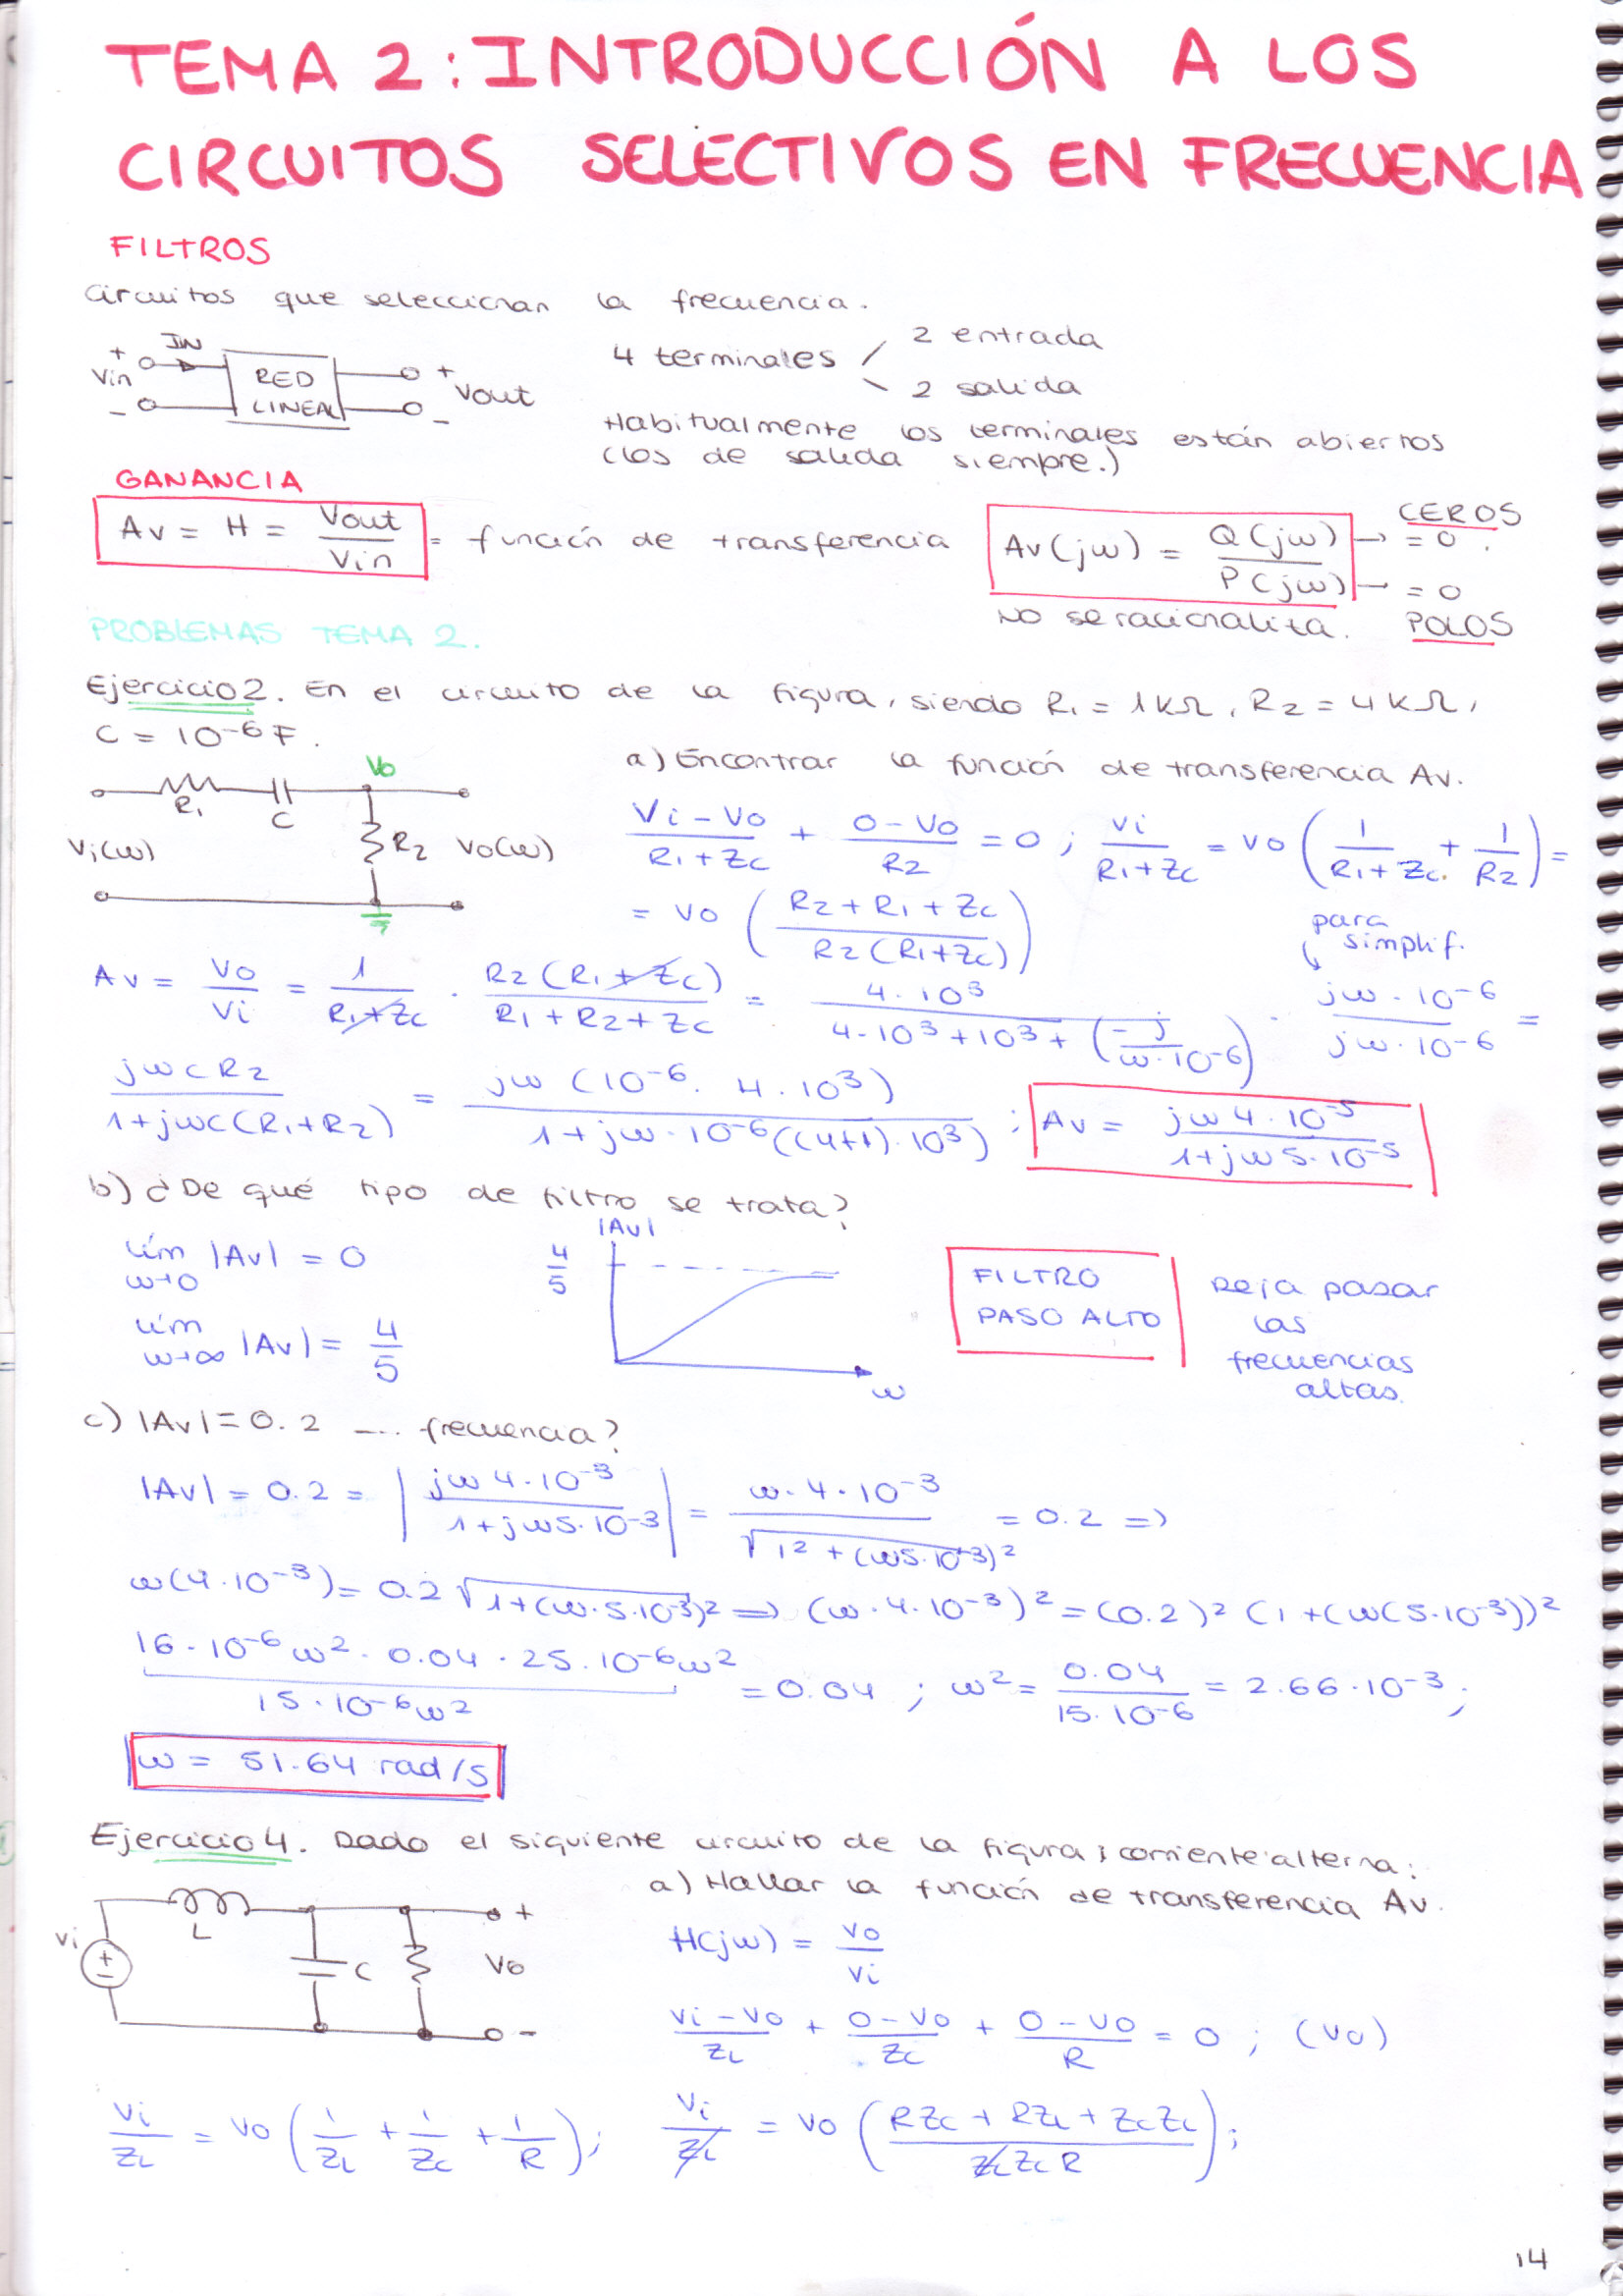 TEMA 2: INTRODUCCIÓN A LOS
CIRCUITOS SELECTIVOS EN FRECUENCIA
FILTROS
Circuitos que seleccionan la frecuencia.
IN
+ Vin -
RED LINEAL
+ Vout -
4 terminales / 2 entrada
\ 2 salida
Habitualmente los terminales están abiertos
(los de salida siempre.)
GANANCIA
Av = H = Vout / Vin = función de transferencia
Av(jω) = Q(jω) / P(jω)
→ = 0 CEROS
→ = 0 POLOS
No se racionaliza.
PROBLEMAS TEMA 2.
Ejercicio 2. En el circuito de la figura, siendo R1 = 1kΩ, R2 = 4kΩ,
C = 10^-6 F.
R1 C Vo
Vi(ω) R2 Vo(ω)
a) Encontrar la función de transferencia Av.
(Vi - Vo)/(R1 + Zc) + (0 - Vo)/R2 = 0 ; Vi/(R1 + Zc) = Vo (1/(R1 + Zc) + 1/R2) =
= Vo ((R2 + R1 + Zc)/(R2(R1+Zc)))
para simplif.
Av = Vo/Vi = 1/(R1+Zc) · R2(R1+Zc)/(R1+R2+Zc) = 4·10^3/(4·10^3+10^3+(-j/(ω·10^-6))) · (jω·10^-6)/(jω·10^-6) =
jωCR2/(1+jωC(R1+R2)) = jω(10^-6·4·10^3)/(1+jω·10^-6((4+1)·10^3)) ; Av = jω4·10^-3/(1+jω5·10^-3)
b) ¿De qué tipo de filtro se trata?
lím ω→0 |Av| = 0
lím ω→∞ |Av| = 4/5
|Av|
4/5
ω
FILTRO
PASO ALTO
Deja pasar
las
frecuencias
altas.
c) |Av| = 0.2 .... frecuencia?
|Av| = 0.2 = |jω4·10^-3/(1+jω5·10^-3)| = ω·4·10^-3/√(1^2+(ω5·10^-3)^2) = 0.2 =>
ω(4·10^-3) = 0.2√(1+(ω·5·10^-3)^2) => (ω·4·10^-3)^2 = (0.2)^2 (1+(ω(5·10^-3))^2
16·10^-6 ω^2 - 0.04·25·10^-6 ω^2 = 0.04 ; ω^2 = 0.04/(15·10^-6) = 2.66·10^-3 ;
15·10^-6 ω^2
ω = 51.64 rad/s
Ejercicio 4. Dado el siguiente circuito de la figura; corriente alterna:
L
Vi C Vo + -
a) Hallar la función de transferencia Av.
H(jω) = Vo/Vi
(Vi - Vo)/ZL + (0 - Vo)/Zc + (0 - Vo)/R = 0 ; (Vo)
Vi/ZL = Vo (1/ZL + 1/Zc + 1/R); Vi/ZL = Vo ((RZc + RZL + ZcZL)/(ZL Zc R));
14